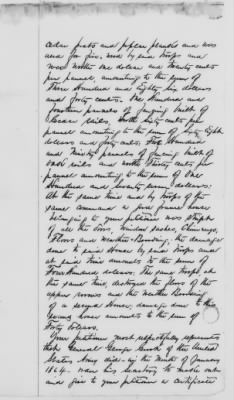 cedar posts and poplar planks and was
used for fire-wood by said troops and
was worth one dollar and twenty cents
per pannel, amounting to the sum of
Three Hundred and Eighty six dollars
and forty cents. One Hundred and
fourteen pannels of fencing built of
rails, worth sixty cents per
pannel amounting to the sum of sixty Eight
dollars and forty cents. Five Hundred
and Ninety pannels of fencing built of
rails and worth Thirty cents per
pannel amounting to the sum of One
Hundred and seventy seven dollars:
At the same time and by troops of the
same command a good frame house
belonging to your petitioner was stript
of all the doors, window sashes, chimneys,
Floors and weather-Boarding, the damage
done to said House by said troops and
at said time amounts to the sum of
Four Hundred dollars. The same troops at
the same time, destroyed the floors of the
upper rooms and the weather Boarding
of a second House, damage done to this
second house amounts to the sum of
Forty dollars.
Your petitioner most respectfully represents
that General George Crook of the United
States Army did in the month of January
1864 order his to make out
and give to your petitioner a certificate